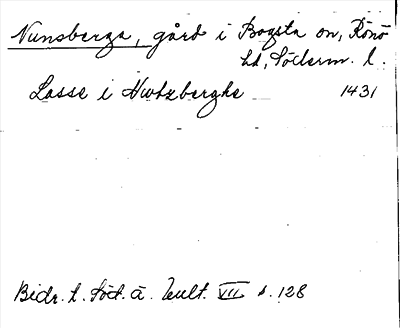 Nunsberga, gård i Bogsta sn, Rönö
hd, Söderm. l.
Lasse i Hwtzberghe 1431
Bidr. t. Söd. ä. kult. VII s. 128